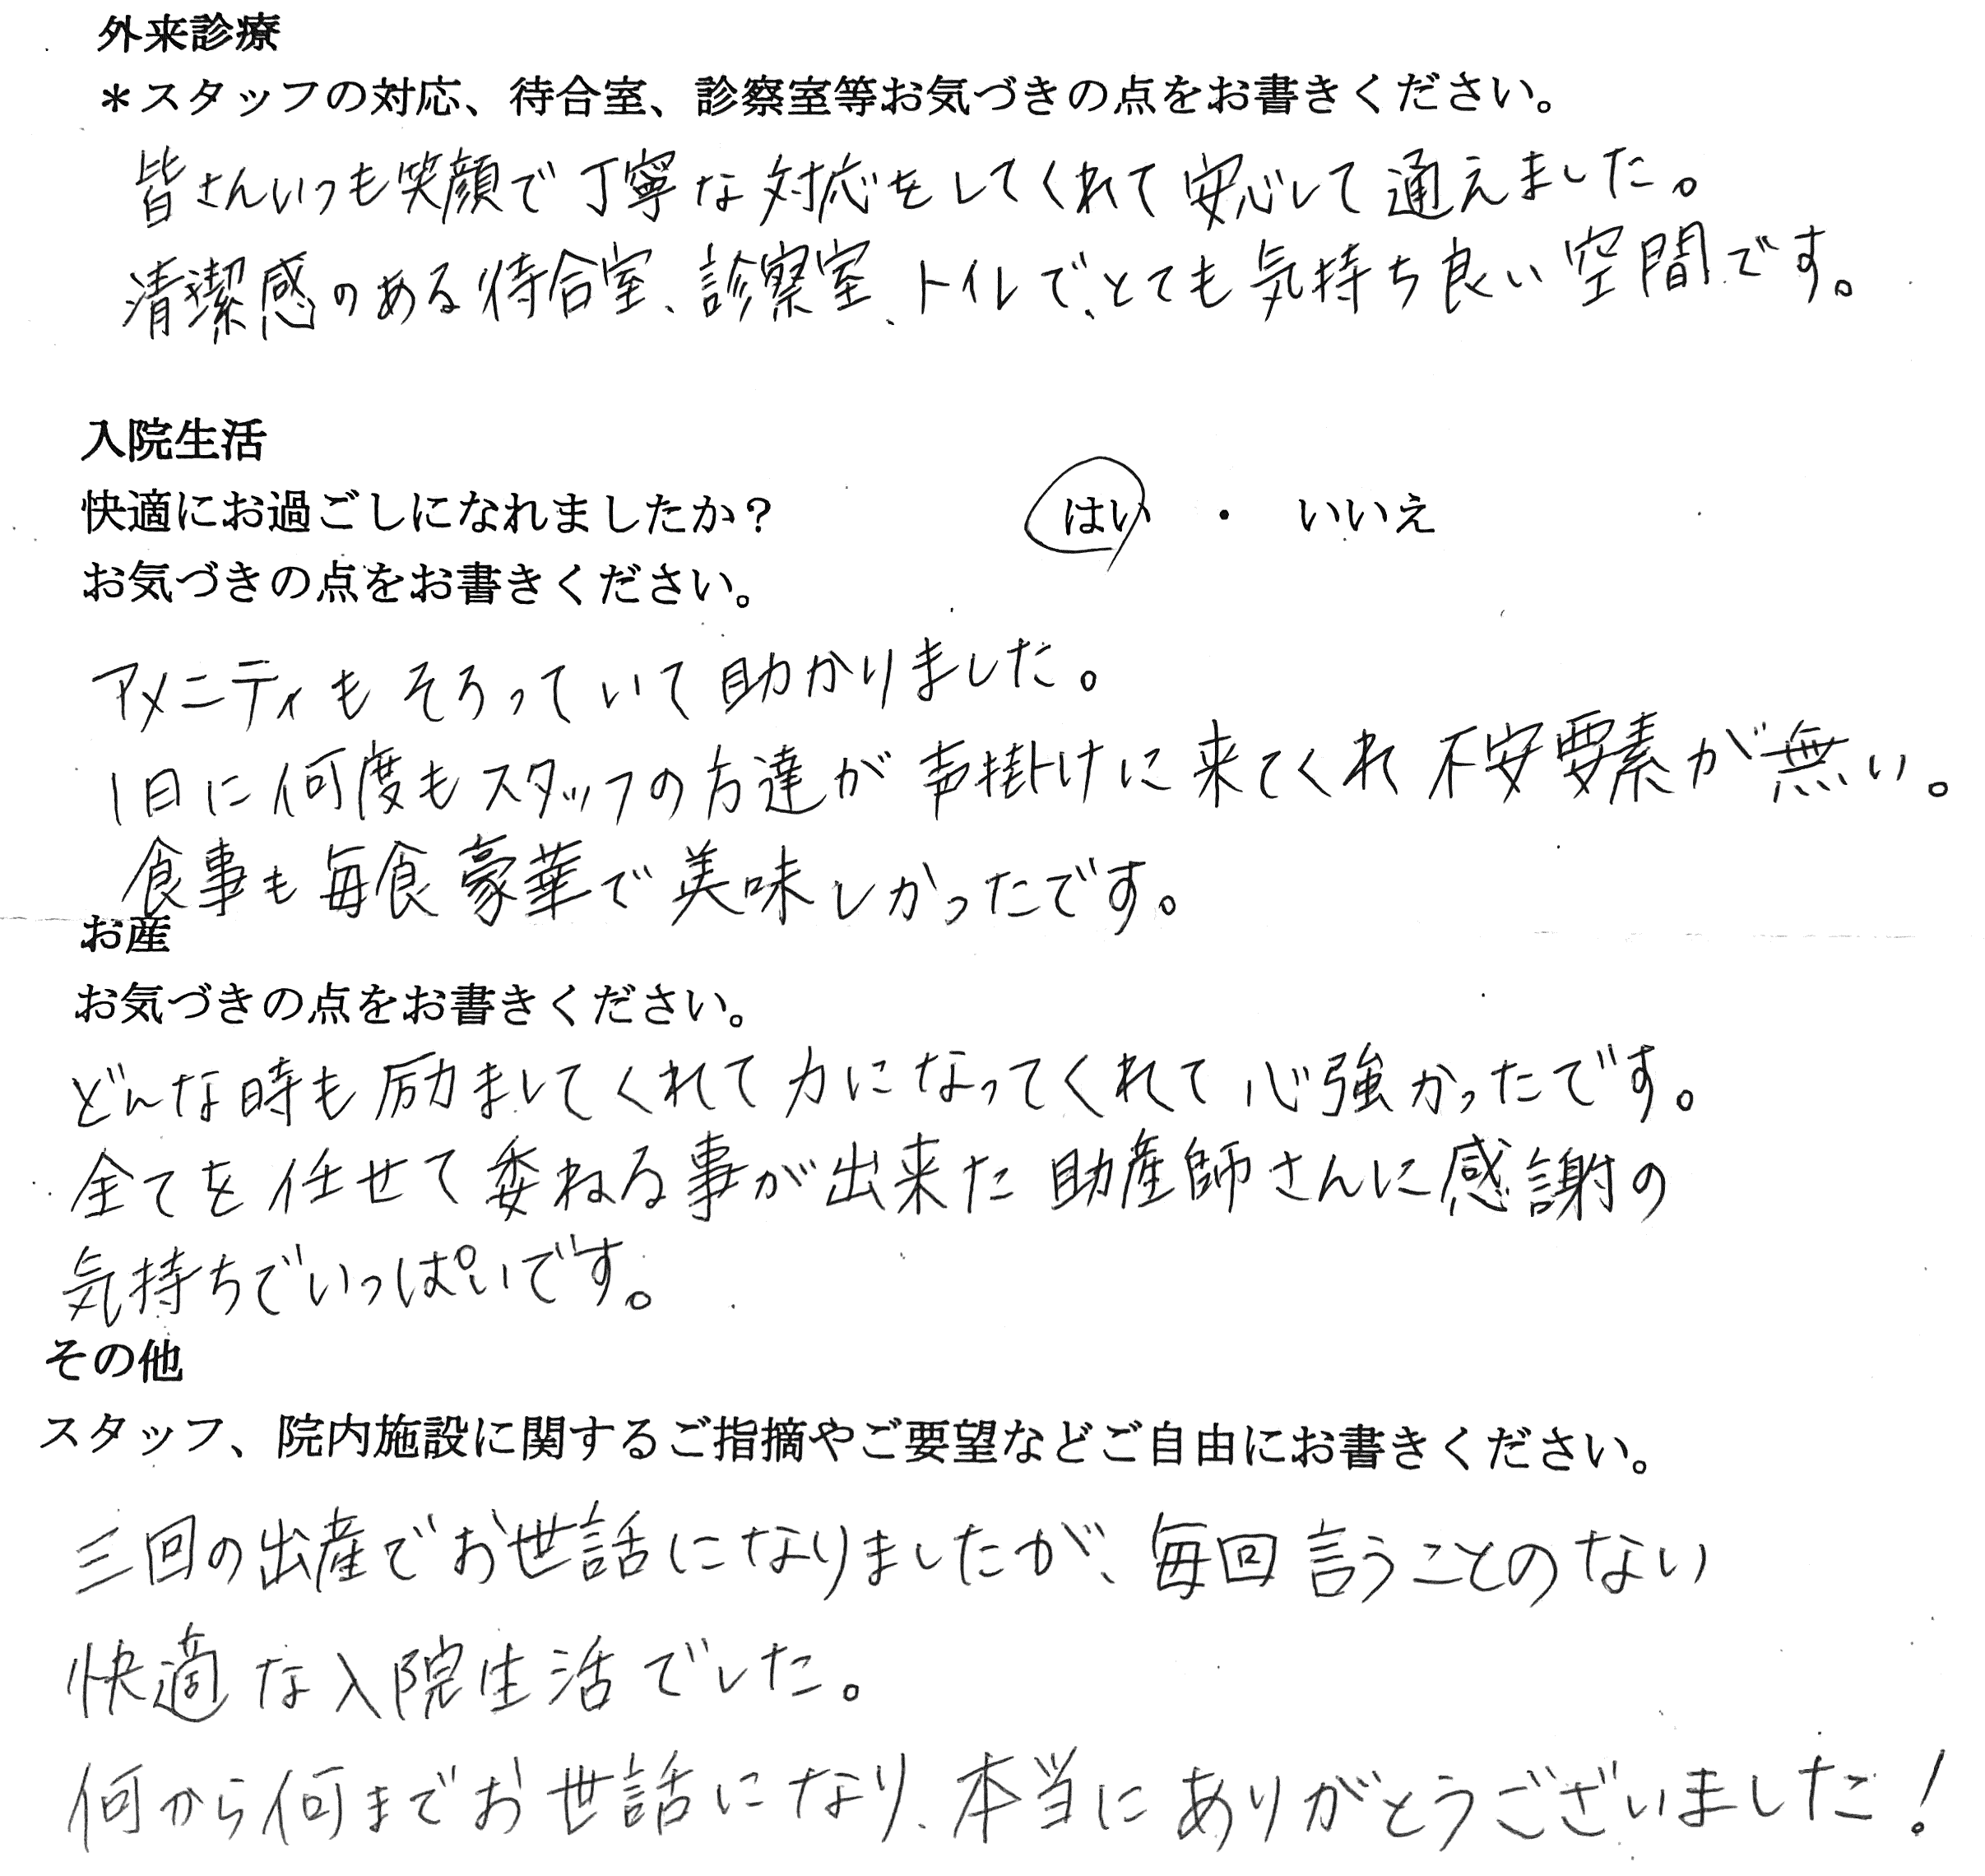 外来診療
＊スタッフの対応、待合室、診察室等お気づきの点をお書きください。
皆さんいつも笑顔で丁寧な対応をしてくれて安心して通えました。
清潔感のある待合室、診察室、トイレで、とても気持ち良い空間です。
入院生活
快適にお過ごしになれましたか？ はい ・ いいえ
お気づきの点をお書きください。
アメニティもそろっていて助かりました。
1日に何度もスタッフの方達が声掛けに来てくれ不安要素が無い。
食事も毎食豪華で美味しかったです。
お産
お気づきの点をお書きください。
どんな時も励ましてくれて力になってくれて心強かったです。
全てを任せて委ねる事が出来た助産師さんに感謝の
気持ちでいっぱいです。
その他
スタッフ、院内施設に関するご指摘やご要望などご自由にお書きください。
三回の出産でお世話になりましたが、毎回言うことのない
快適な入院生活でした。
何から何までお世話になり、本当にありがとうございました！